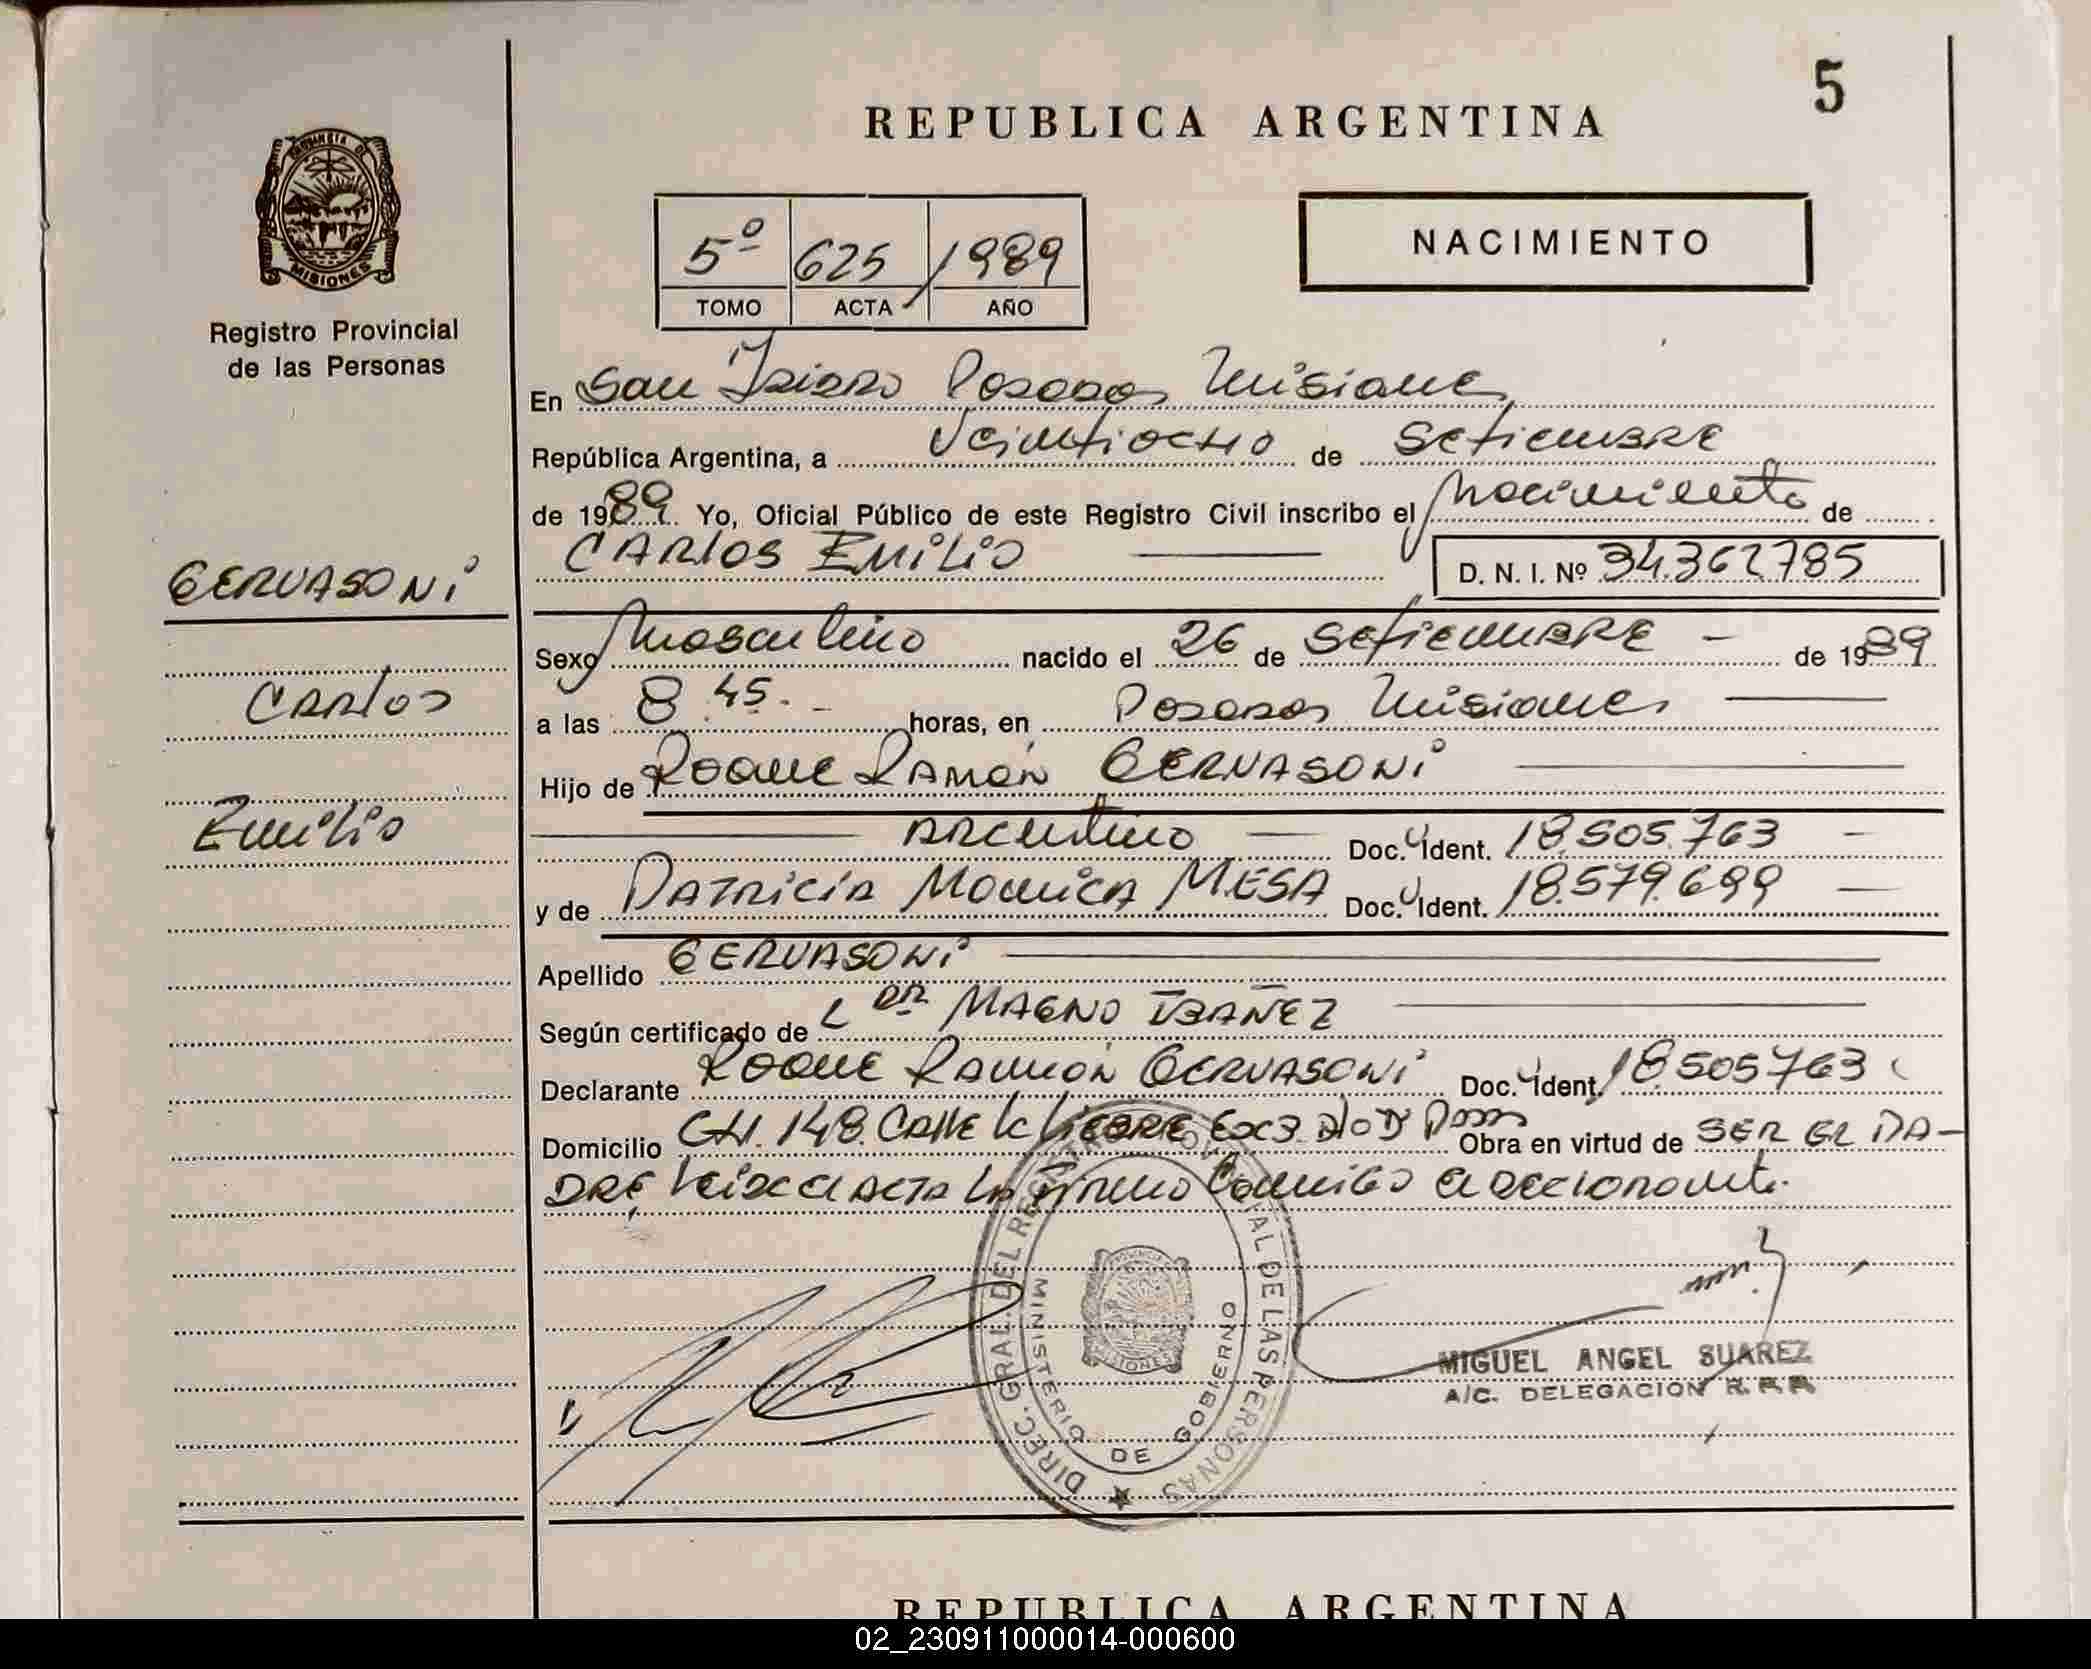 5
REPUBLICA ARGENTINA
PROVINCIA DE
MISIONES
Registro Provincial
de las Personas
5º 625 1989
TOMO ACTA AÑO
NACIMIENTO
En San Isidro Posadas Misiones
República Argentina, a Veintiocho de Setiembre
de 1989. Yo, Oficial Público de este Registro Civil inscribo el Nacimiento de
CARLOS EMILIO D. N. I. Nº 34.362785
GERVASONI
Carlos
Emilio
Sexo Masculino nacido el 26 de Setiembre de 1989
a las 8.45. horas, en Posadas Misiones
Hijo de Roque Ramón GERVASONI
Argentino Doc. Ident. 18.505.763
y de PATRICIA MONICA MESA Doc. Ident. 18.579.699
Apellido GERVASONI
Según certificado de DR MAGNO IBAÑEZ
Declarante Roque Ramón GERVASONI Doc. Ident. 18.505763
Domicilio CH. 148. Calle Obra en virtud de SER EL PA-
DRE el acta la firmo conmigo el declarante.
DIREC. GRAL. DEL REGISTRO PROVINCIAL DE LAS PERSONAS
MINISTERIO DE GOBIERNO
MISIONES
MIGUEL ANGEL SUAREZ
A/C. DELEGACION R. P. P.
REPUBLICA ARGENTINA
02_230911000014-000600